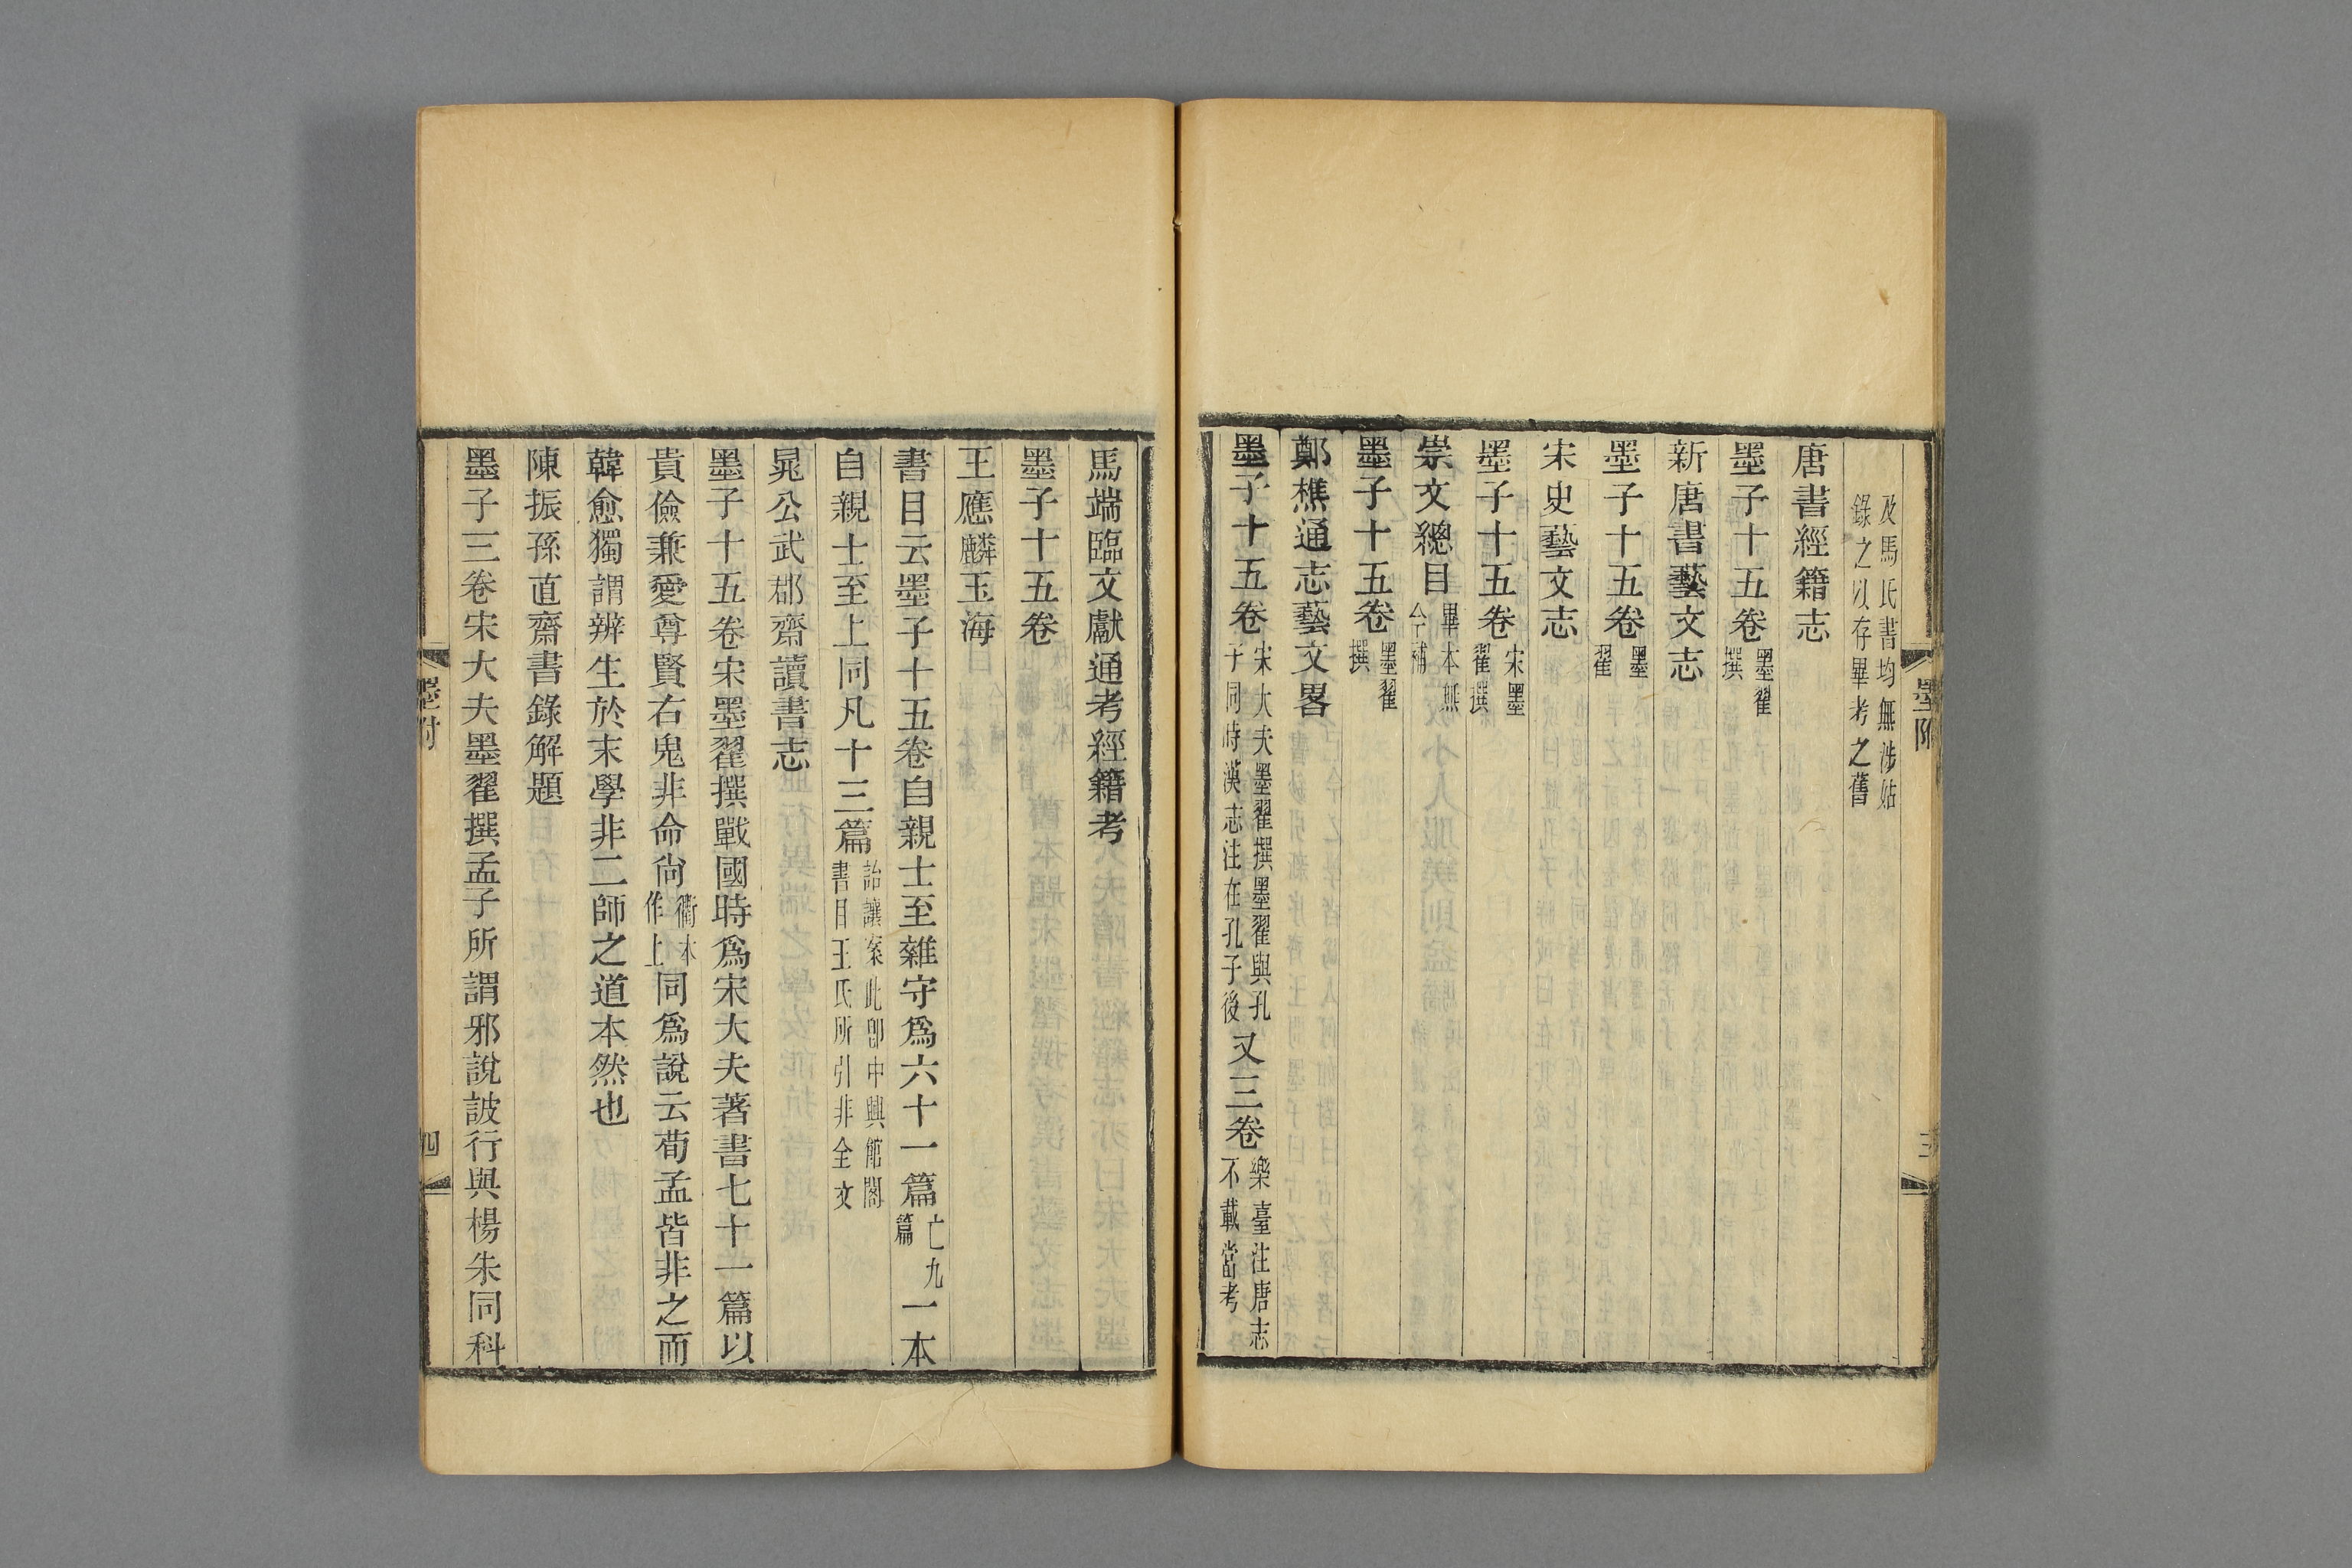 及馬氏書均無涉姑
錄之以存畢考之舊
唐書經籍志
墨子十五卷墨翟撰
新唐書藝文志
墨子十五卷墨翟
宋史藝文志
墨子十五卷宋墨翟撰
崇文總目畢本無今補
墨子十五卷墨翟撰
鄭樵通志藝文畧
墨子十五卷宋大夫墨翟撰墨翟與孔子同時漢志注在孔子後又三卷樂臺注唐志不載當考
墨附
三
馬端臨文獻通考經籍考
墨子十五卷
王應麟玉海
書目云墨子十五卷自親士至雜守爲六十一篇亡九篇一本
自親士至上同凡十三篇詒讓案此卽中興館閣書目王氏所引非全文
晁公武郡齋讀書志
墨子十五卷宋墨翟撰戰國時爲宋大夫著書七十一篇以
貴儉兼愛尊賢右鬼非命尙衢本作上同爲說云荀孟皆非之而
韓愈獨謂辨生於末學非二師之道本然也
陳振孫直齋書錄解題
墨子三卷宋大夫墨翟撰孟子所謂邪說詖行與楊朱同科
墨附
四